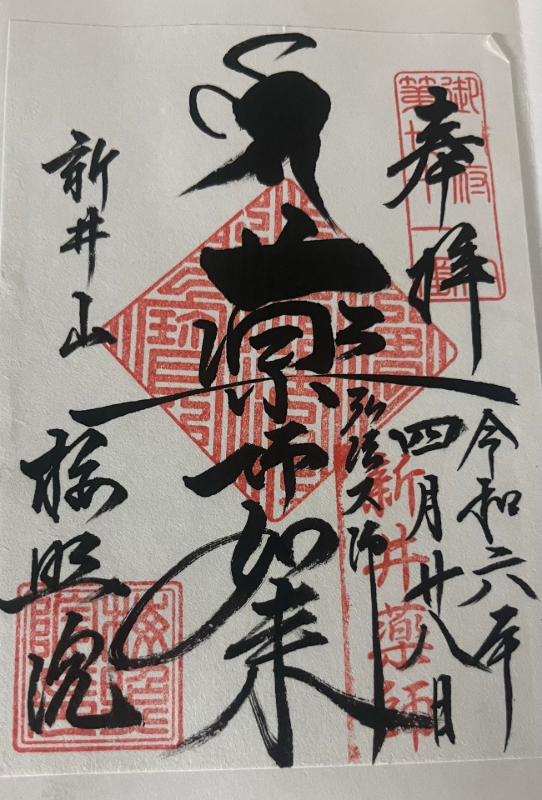 奉拝
令和六年
四月廿八日
薬師如来
弘法大師
新井山
梅照院
新井薬師